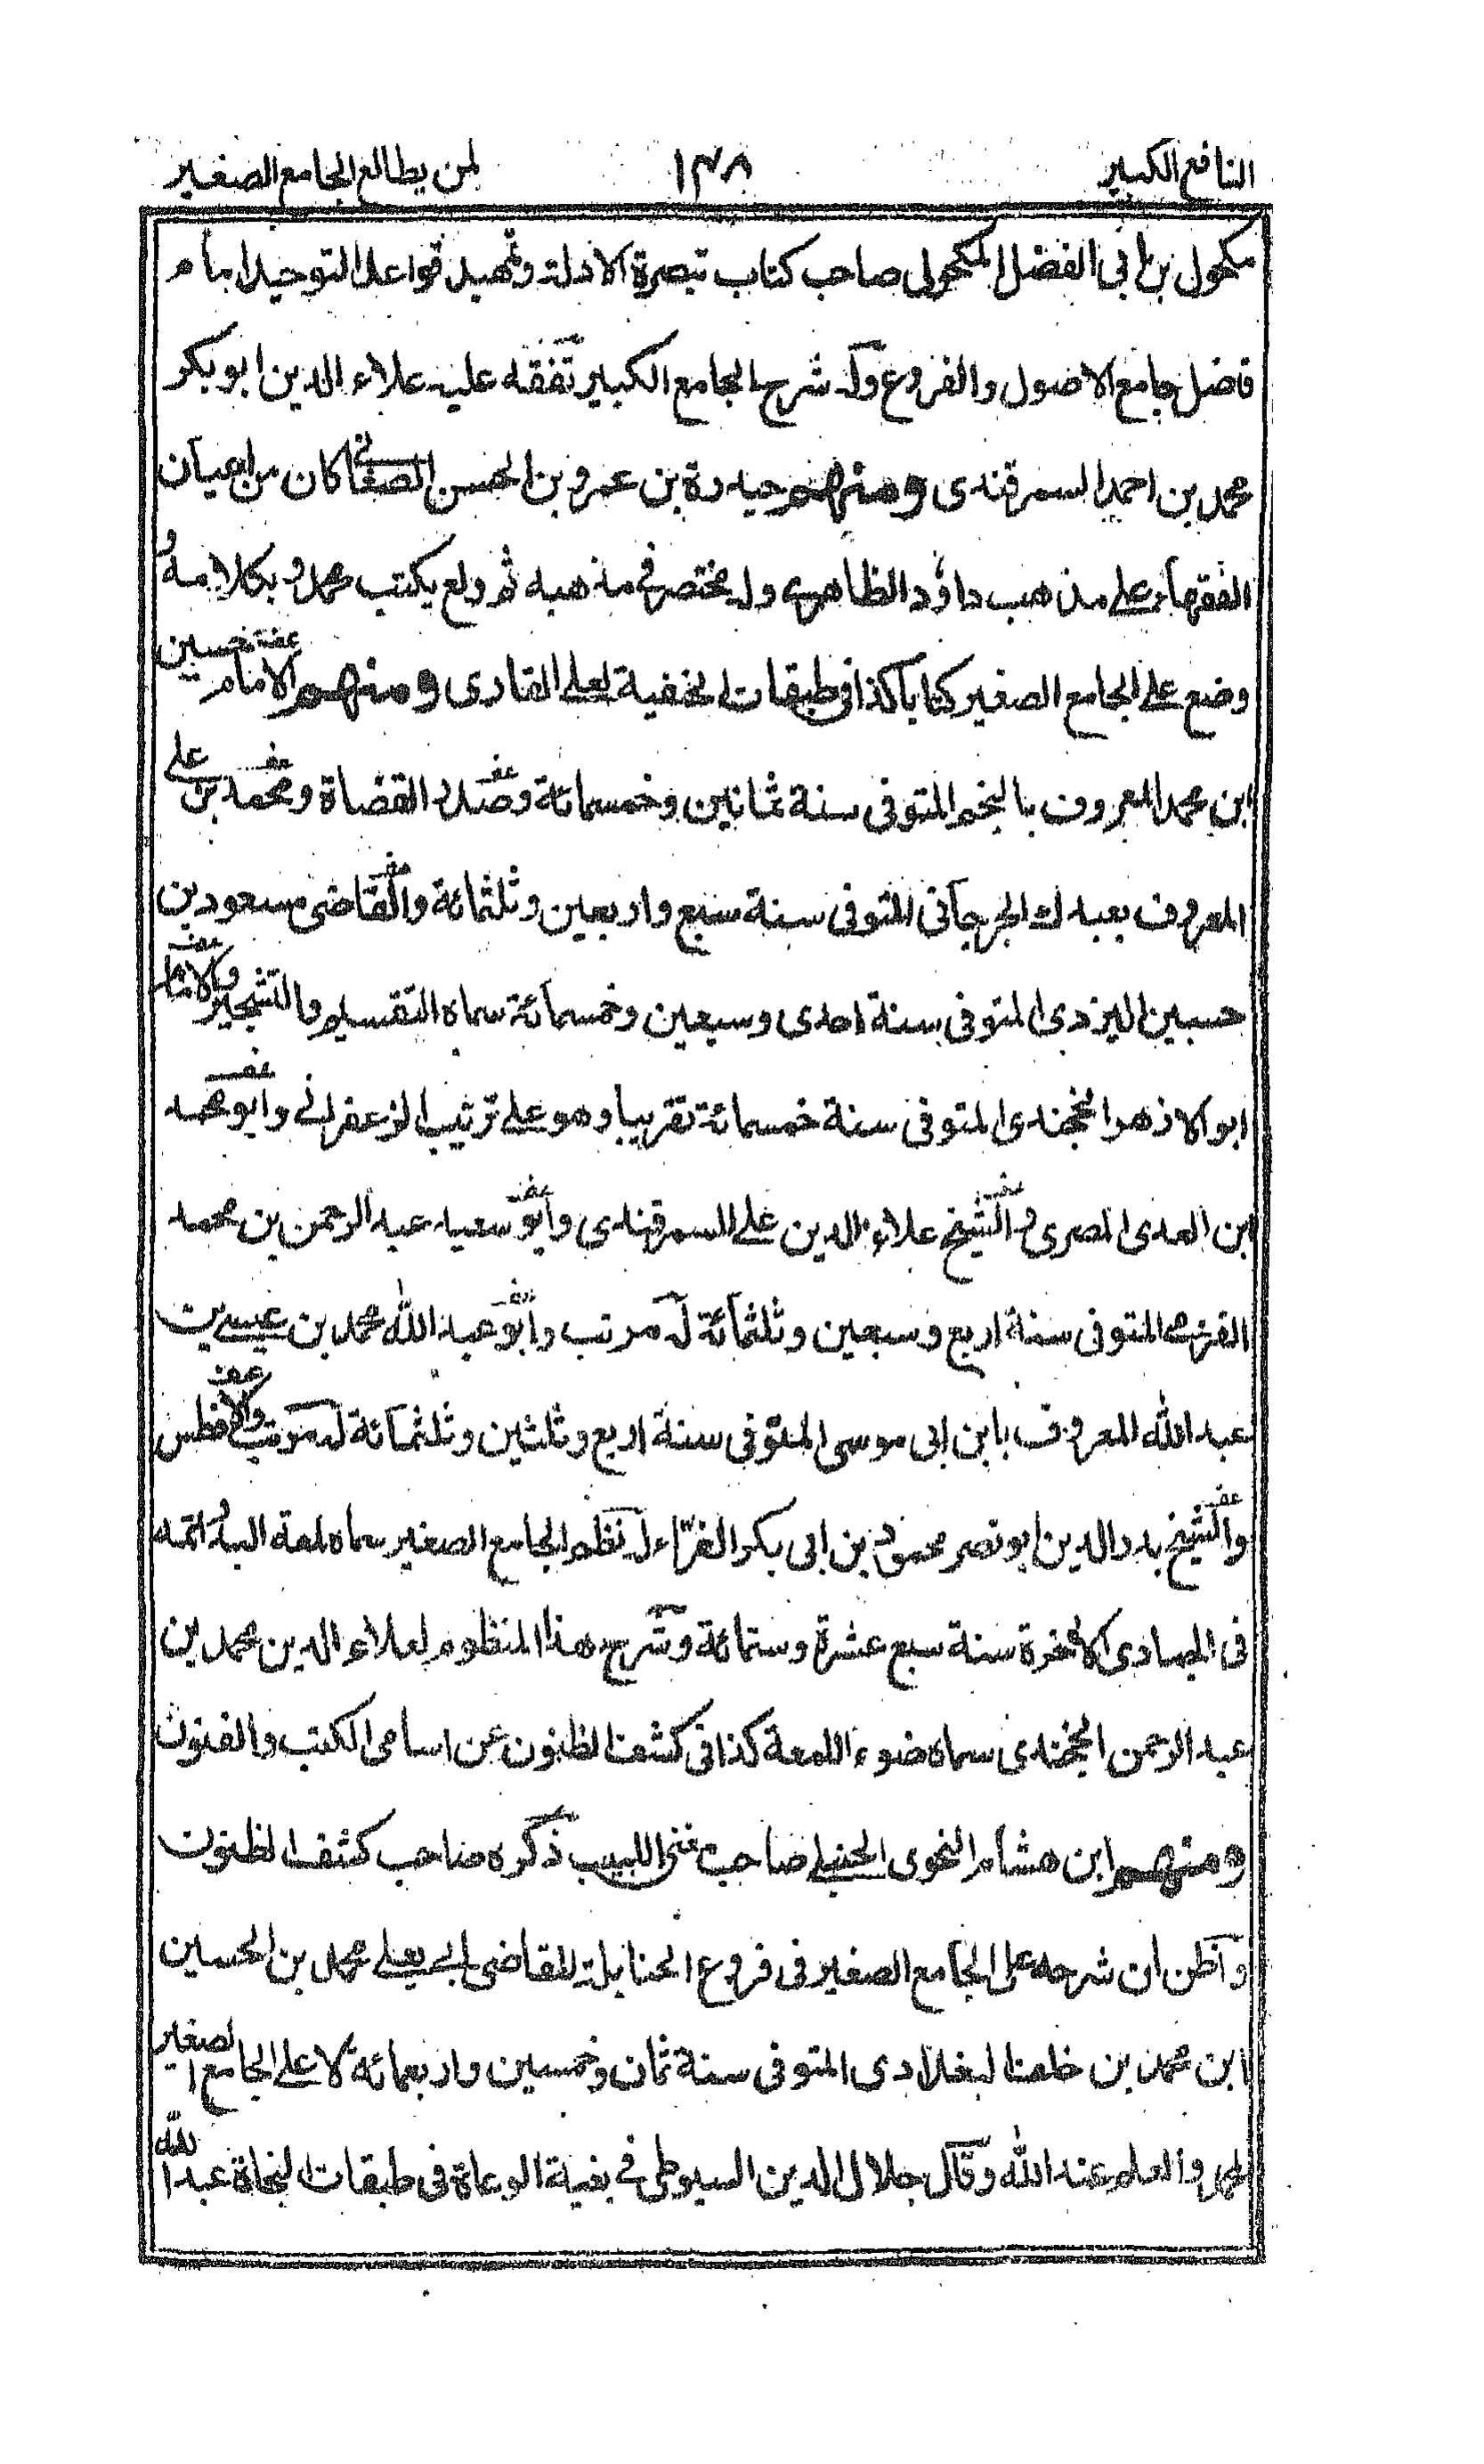 النافع الكبير ١٣٨ لمن يطالع الجامع الصغير
مكحول بن ابى الفضل المكحولى صاحب كتاب تبصرة الادلة وتمهيد قواعد التوحيد امام
فاضل جامع الاصول والفروع وله شرح الجامع الكبير تفقه عليه علاء الدين ابو بكر
محمد بن احمد السمرقندى ومنهم حيدرة بن عمرو بن الحسن الصغانى كان من اعيان
الفقهاء على مذهب داؤد الظاهرى وله مختصر فى مذهبه ثم ولع بكتب محمد وبكلامه و
وضع على الجامع الصغير كتابا كذا فى طبقات الحنفية لعلى القارى ومنهم الامام حسين
ابن محمد المعروف بالنجم المتوفى سنة ثمانين وخمسمائة وصدر القضاة ومحمد بن على
المعروف بعبدك الجرجانى المتوفى سنة سبع واربعين وثلثمائة والقاضى مسعود بن
حسين اليزدى المتوفى سنة احدى وسبعين وخمسمائة سماه التقسيم والتشجير والامام
ابو الازهر الخجندى المتوفى سنة خمسمائة تقريبا وهو على ترتيب الزعفرانى وابو محمد
ابن العدى المصرى والشيخ علاء الدين على السمرقندى وابو سعيد عبد الرحمن بن محمد
الغزى المتوفى سنة اربع وسبعين وثلثمائة له مرتب وابو عبد الله محمد بن عيسى بن
عبد الله المعروف بابن ابى موسى المتوفى سنة اربع وثلثين وثلثمائة له مرتب والافطس
والشيخ بدر الدين ابو نصر محمود بن ابى بكر الفراء له نظم الجامع الصغير سماه لمعة البدر اتمه
فى الجمادى الاخرة سنة سبع عشرة وستمائة وشرح هذا المنظوم لعلاء الدين محمد بن
عبد الرحمن الخجندى سماه ضوء اللمعة كذا فى كشف الظنون عن اسامى الكتب والفنون
ومنهم ابن هشام النحوى الحنبلى صاحب مغنى اللبيب ذكره صاحب كشف الظنون
واظن ان شرحه على الجامع الصغير فى فروع الحنابلة للقاضى ابى يعلى محمد بن الحسين
ابن محمد بن خلف البغدادى المتوفى سنة ثمان وخمسين واربعمائة لا على الجامع الصغير
لمحمد والعلم عند الله وقال جلال الدين السيوطى فى بغية الوعاة فى طبقات النحاة عبد الله